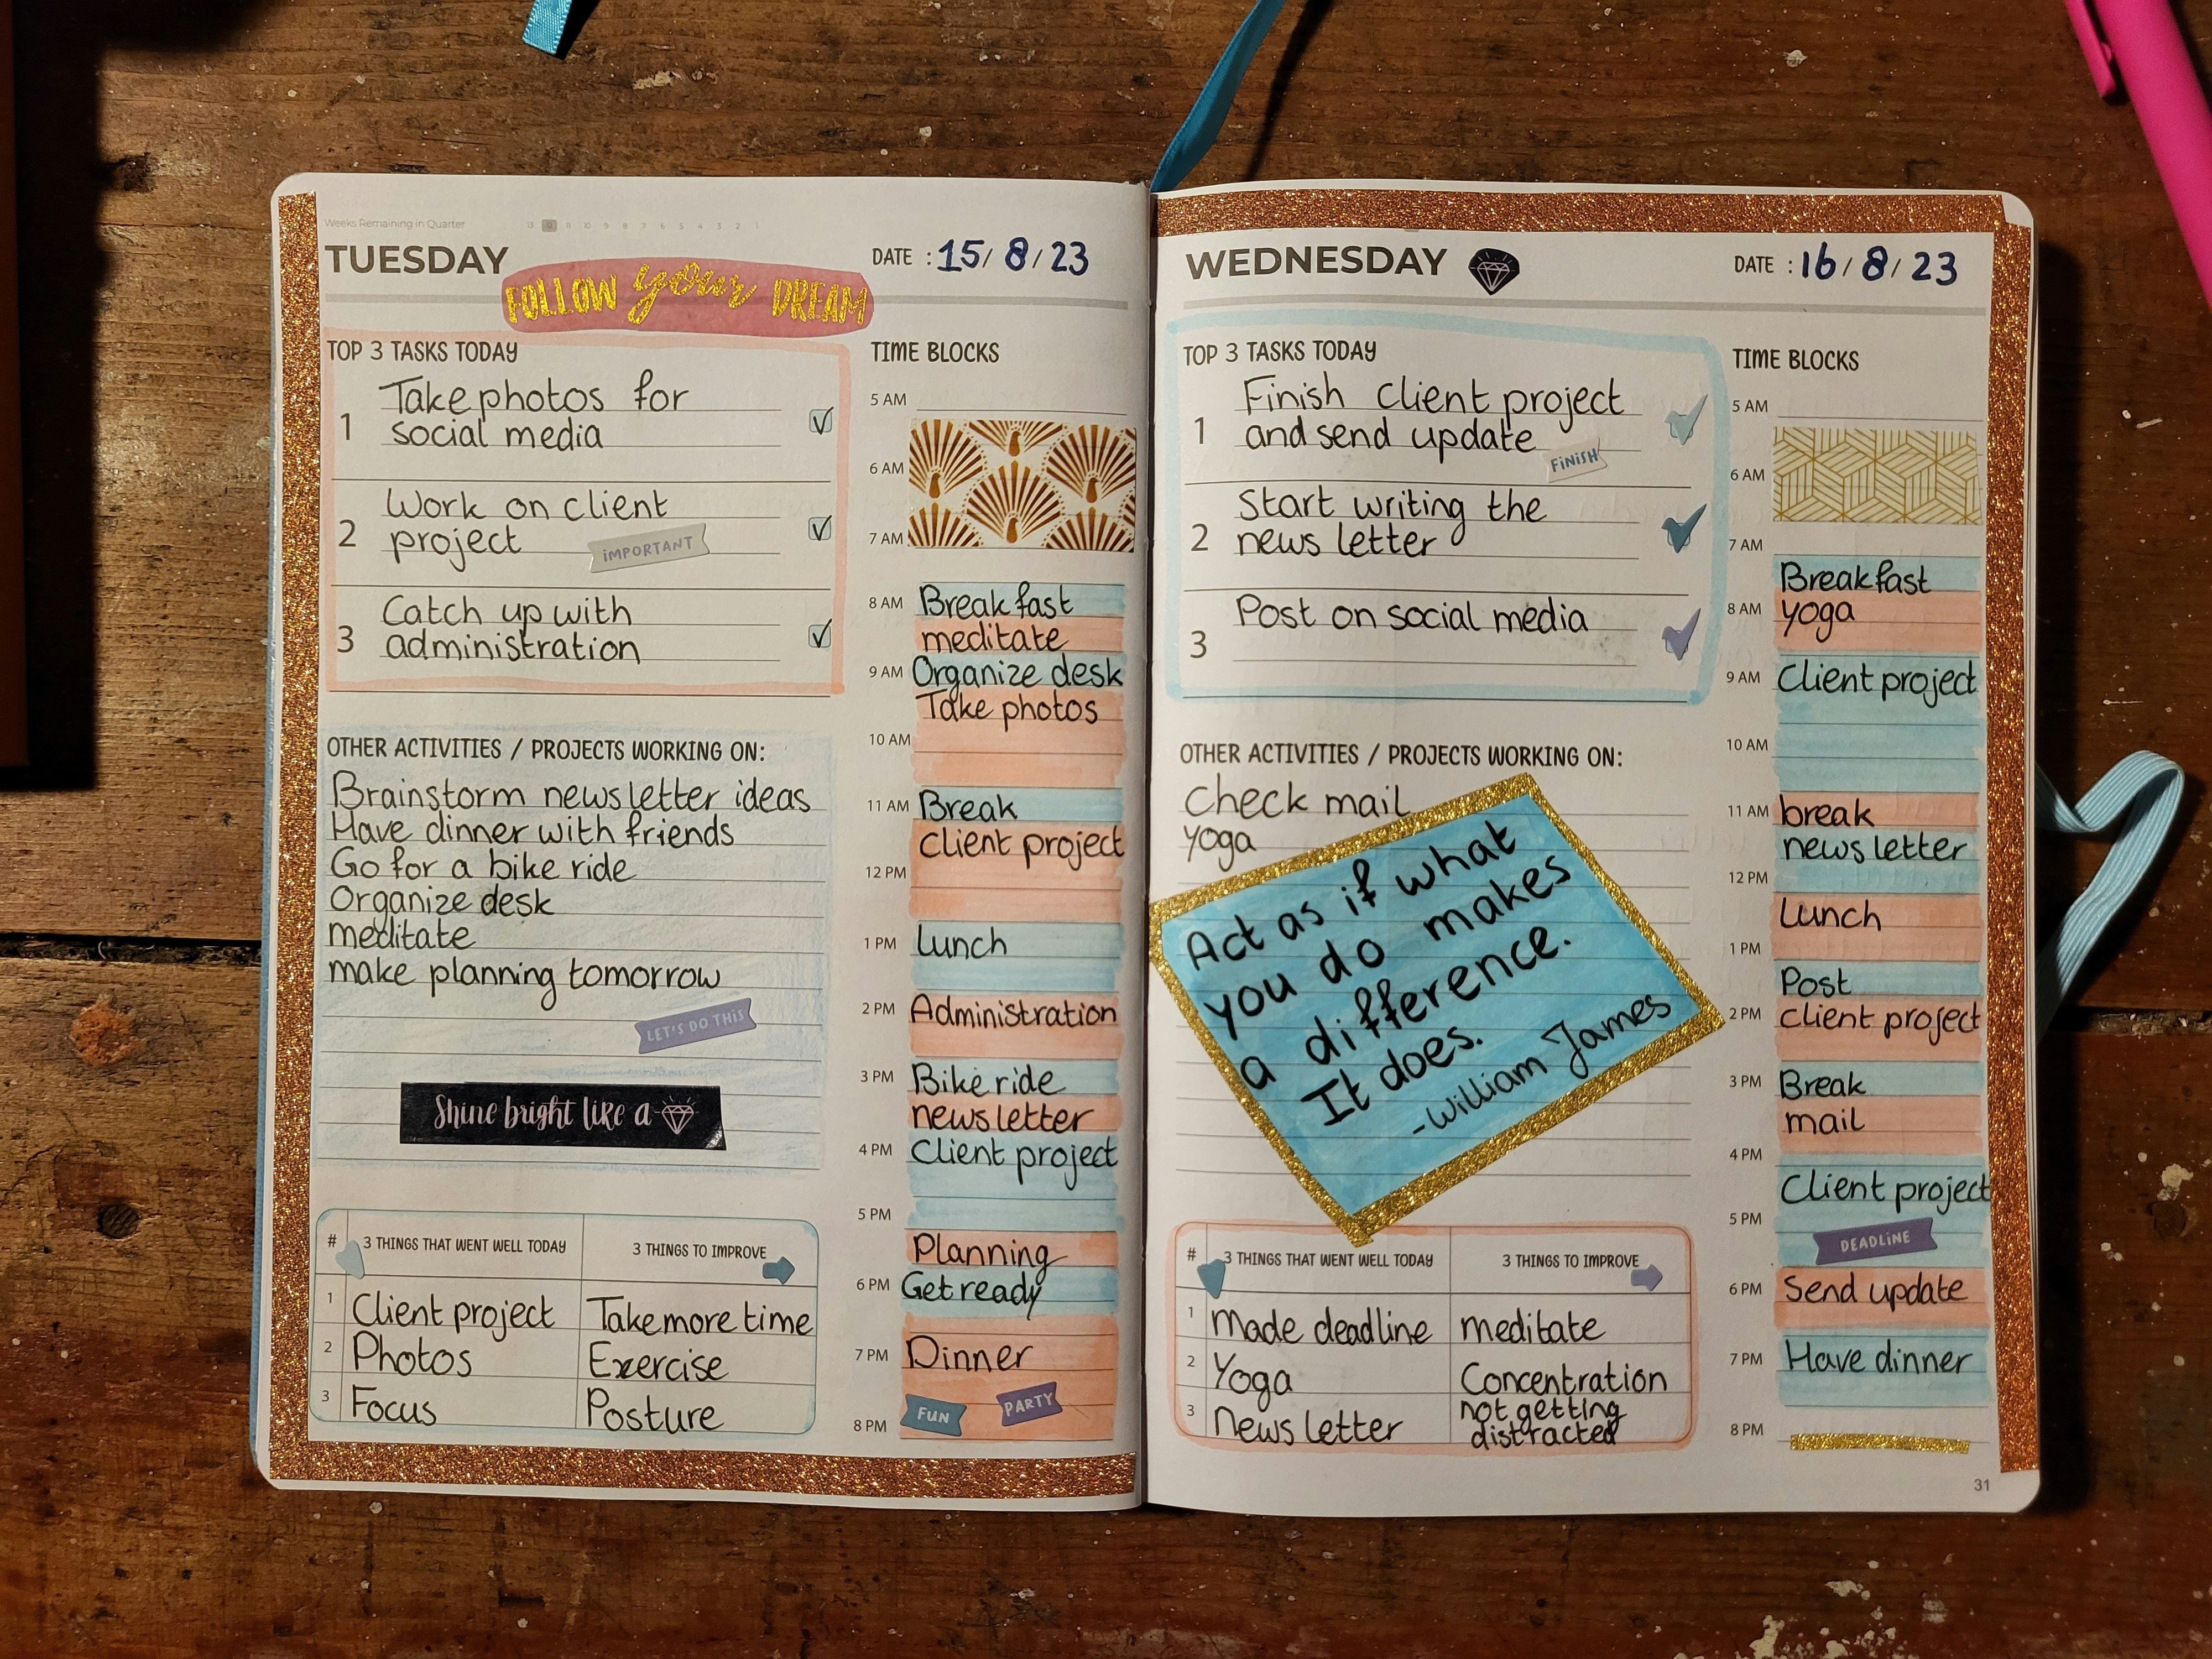 Weeks Remaining in Quarter 13 12 11 10 9 8 7 6 5 4 3 2 1
TUESDAY
FOLLOW your DREAM
DATE : 15/ 8 / 23
TOP 3 TASKS TODAY
1 Take photos for
social media
2 Work on client
project
IMPORTANT
3 Catch up with
administration
OTHER ACTIVITIES / PROJECTS WORKING ON:
Brainstorm newsletter ideas
Have dinner with friends
Go for a bike ride
Organize desk
meditate
make planning tomorrow
LET'S DO THIS
Shine bright like a
# 3 THINGS THAT WENT WELL TODAY 3 THINGS TO IMPROVE
1 Client project Take more time
2 Photos Exercise
3 Focus Posture
TIME BLOCKS
5 AM
6 AM
7 AM
8 AM Breakfast
meditate
9 AM Organize desk
Take photos
10 AM
11 AM Break
client project
12 PM
1 PM lunch
2 PM Administration
3 PM Bike ride
newsletter
4 PM Client project
5 PM
Planning
6 PM Get ready
7 PM Dinner
FUN PARTY
8 PM
WEDNESDAY
DATE : 16 / 8 / 23
TOP 3 TASKS TODAY
1 Finish client project
and send update
FINISH
2 Start writing the
news letter
3 Post on social media
OTHER ACTIVITIES / PROJECTS WORKING ON:
Check mail
yoga
Act as if what
you do makes
a difference.
It does.
-William James
# 3 THINGS THAT WENT WELL TODAY 3 THINGS TO IMPROVE
1 Made deadline meditate
2 Yoga Concentration
3 News letter not getting
distracted
TIME BLOCKS
5 AM
6 AM
7 AM
Breakfast
8 AM yoga
9 AM Client project
10 AM
11 AM break
news letter
12 PM
Lunch
1 PM
Post
2 PM client project
3 PM Break
mail
4 PM
Client project
5 PM
DEADLINE
6 PM Send update
7 PM Have dinner
8 PM
31